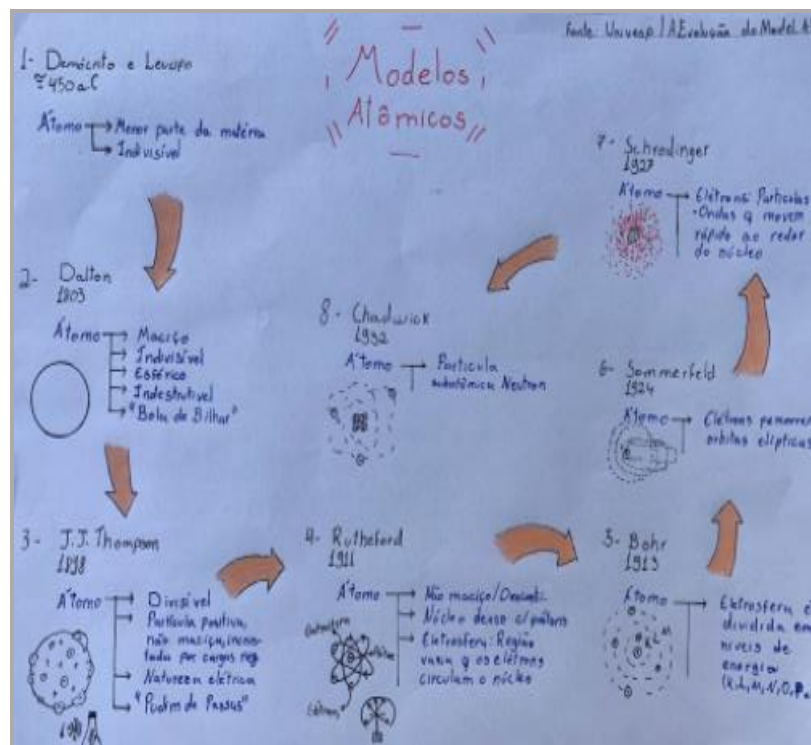 Modelos
Atômicos
Fonte: Univesp / A Evolução do Model. A
1- Demócrito e Leucipo
≅ 450 a.C
Átomo → Menor parte da matéria
→ Indivisível
2- Dalton
1803
Átomo → Maciço
→ Indivisível
→ Esférico
→ Indestrutível
→ "Bola de Bilhar"
3- J.J. Thompson
1898
Átomo → Divisível
→ Partícula positiva,
não maciça, incrus-
tada por cargas neg.
→ Natureza elétrica
→ "Pudim de Passas"
4- Rutheford
1911
Átomo → Não maciço/
→ Núcleo denso c/ prótons
→ Eletrosfera: Região
vazia q os elétrons
circulam o núcleo
Eletrosfera
Núcleo
Elétrons
5- Bohr
1913
Átomo → Eletrosfera é
dividida em
níveis de
energia
(K, L, M, N, O, P,
K L M
6- Sommerfeld
1924
Átomo → Elétrons percorrem
orbitas elípticas
7- Schrodinger
1927
Átomo → Elétrons: Partículas
-Ondas q movem
rápido ao redor
do núcleo
8- Chadwick
1932
Átomo → Partícula
subatômica Neutron